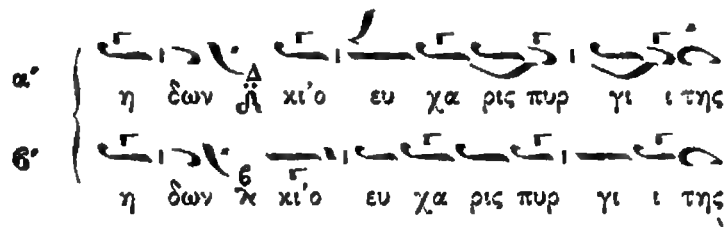 α΄
η δων Δ κι᾽ο ευ χα ρις πυρ γι ι της
β΄
η δων κι᾽ο ευ χα ρις πυρ γι ι της